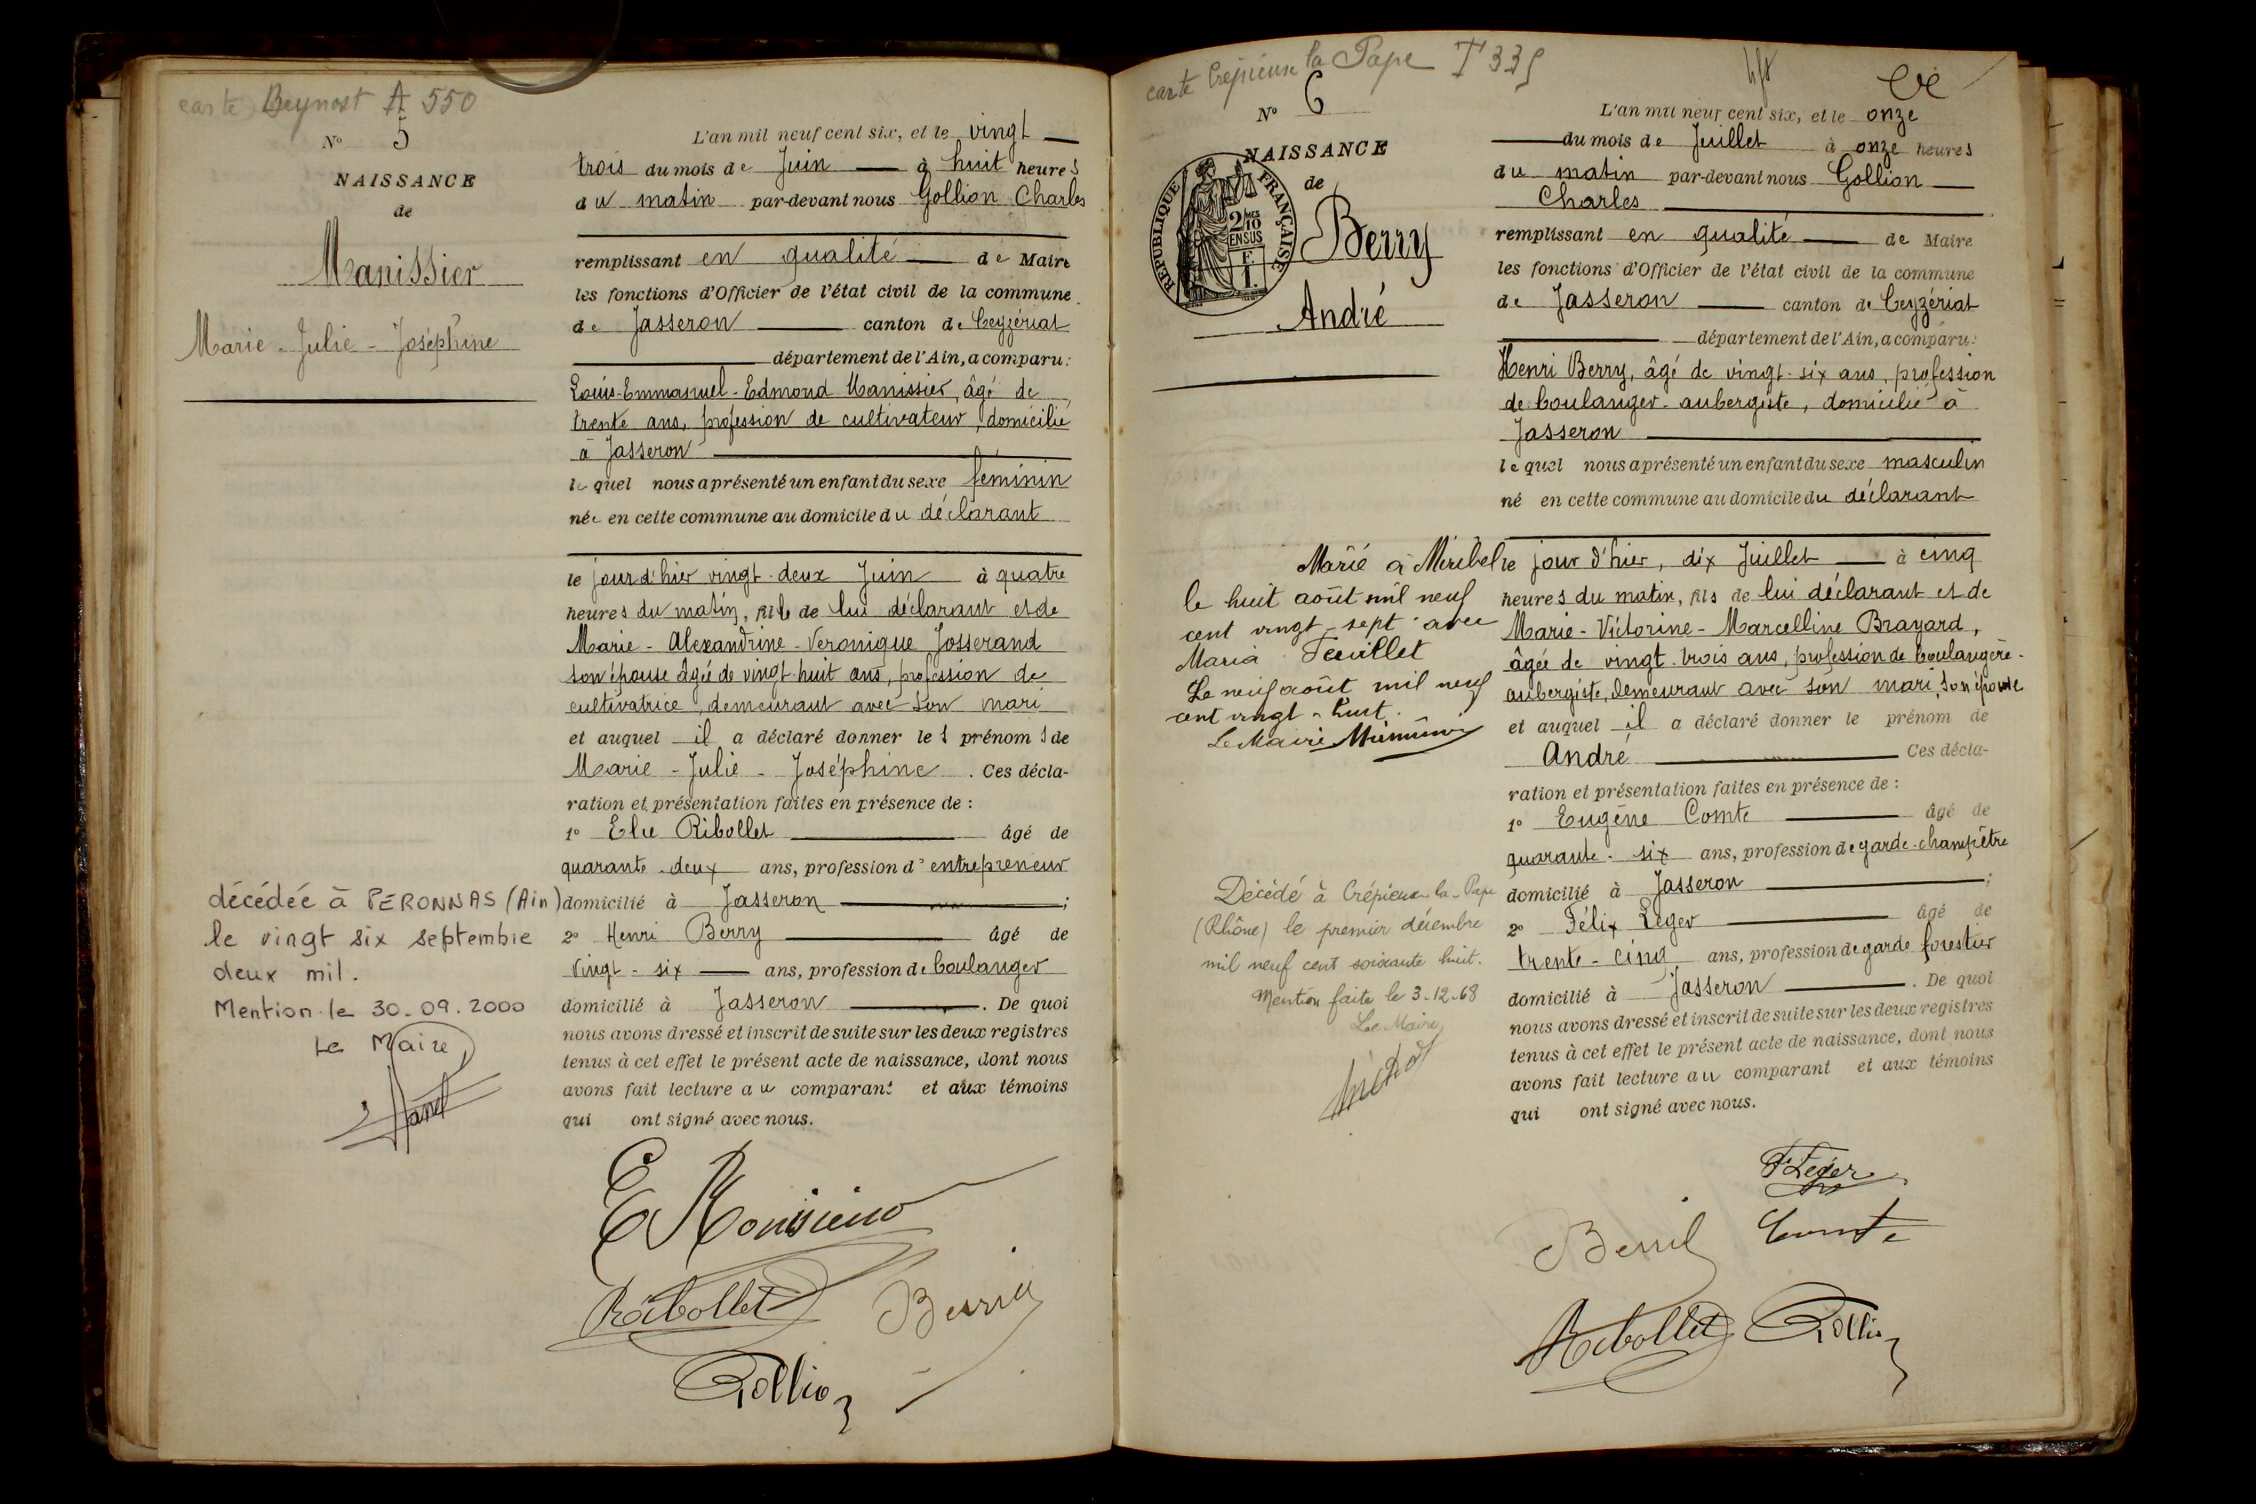 carte Beynost A 550
No 5
NAISSANCE
de
Manissier
Marie - Julie - Joséphine
décédée à PÉRONNAS (Ain)
le vingt six septembre
deux mil.
Mention le 30.09.2000
Le Maire
L'an mil neuf cent six, et le vingt
trois du mois de Juin à huit heures
du matin par-devant nous Gollion Charles
remplissant en qualité de Maire
les fonctions d'Officier de l'état civil de la commune
de Jasseron canton de Ceyzériat
département de l'Ain, a comparu :
Louis-Emmanuel-Edmond Manissier, âgé de
trente ans, profession de cultivateur, domicilié
à Jasseron
lequel nous a présenté un enfant du sexe féminin
née en cette commune au domicile du déclarant
le jour d'hier vingt-deux Juin à quatre
heures du matin, fille de lui déclarant et de
Marie - Alexandrine - Veronique Josserand
son épouse âgée de vingt-huit ans, profession de
cultivatrice, demeurant avec son mari
et auquel il a déclaré donner les prénoms de
Marie - Julie - Joséphine . Ces décla-
ration et présentation faites en présence de :
1o Elie Ribollet âgé de
quarante-deux ans, profession d'entrepreneur
domicilié à Jasseron ;
2o Henri Berry âgé de
vingt-six ans, profession de boulanger
domicilié à Jasseron . De quoi
nous avons dressé et inscrit de suite sur les deux registres
tenus à cet effet le présent acte de naissance, dont nous
avons fait lecture au comparant et aux témoins
qui ont signé avec nous.
Ribollet
Gollion
carte Crépieux la Pape T 335
No 6
NAISSANCE
de
RÉPUBLIQUE FRANÇAISE
2/10 EN SUS
1 F.
Berry
André
Marié à Miribel
le huit août mil neuf
cent vingt-sept avec
Maria Feuillet
Le neuf août mil neuf
cent vingt-huit.
Le Maire
Décédé à Crépieux-la-Pape
(Rhône) le premier décembre
mil neuf cent soixante huit.
Mention faite le 3-12-68
Le Maire
L'an mil neuf cent six, et le onze
du mois de Juillet à onze heures
du matin par-devant nous Gollion
Charles
remplissant en qualité de Maire
les fonctions d'Officier de l'état civil de la commune
de Jasseron canton de Ceyzériat
département de l'Ain, a comparu :
Henri Berry, âgé de vingt-six ans, profession
de boulanger-aubergiste, domicilié à
Jasseron
lequel nous a présenté un enfant du sexe masculin
né en cette commune au domicile du déclarant
le jour d'hier, dix Juillet à cinq
heures du matin, fils de lui déclarant et de
Marie - Victorine - Marcelline Brayard,
âgée de vingt-trois ans, profession de boulangère-
aubergiste, demeurant avec son mari, son épouse
et auquel il a déclaré donner le prénom de
André Ces décla-
ration et présentation faites en présence de :
1o Eugène Comte âgé de
quarante-six ans, profession de garde-champêtre
domicilié à Jasseron ;
2o Félix Léger âgé de
trente-cinq ans, profession de garde forestier
domicilié à Jasseron . De quoi
nous avons dressé et inscrit de suite sur les deux registres
tenus à cet effet le présent acte de naissance, dont nous
avons fait lecture au comparant et aux témoins
qui ont signé avec nous.
F Léger
Comte
Ribollet
Gollion